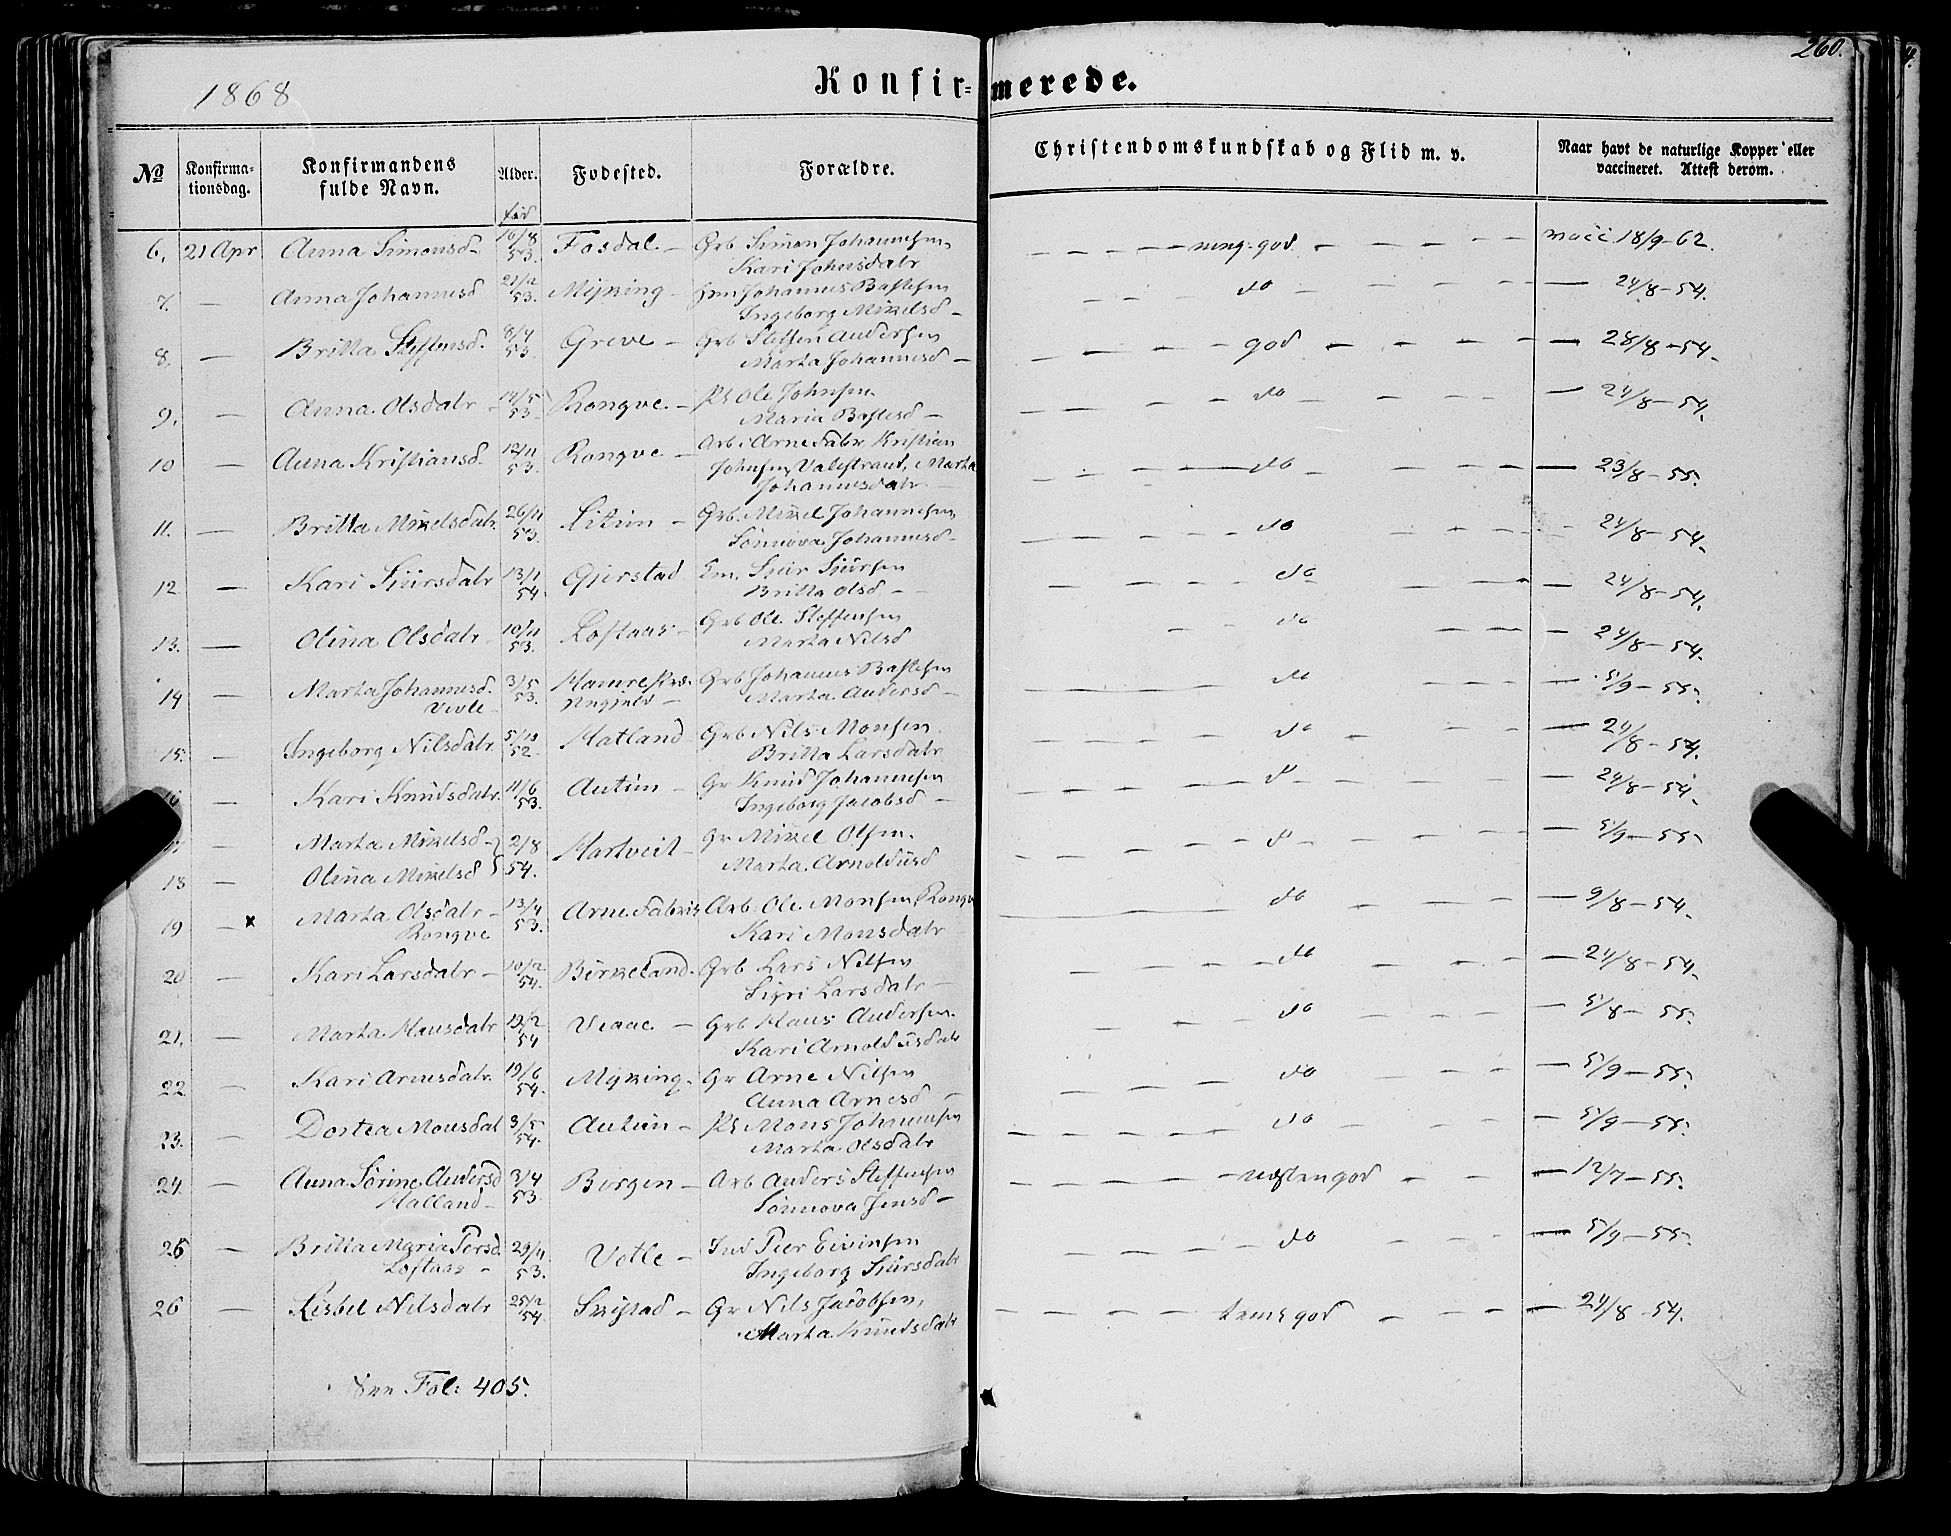 260.
1868
Konfirmerede.
No
Konfirmationsdag.
Konfirmandens fulde Navn.
Alder.
Fødested.
Forældre.
Christendomskundskab og Flid m. v.
Naar havt de naturlige Kopper eller vaccineret. Attest derom.
født
6. 21 Apr Anna Simonsd. 16/8 53. Fosdal. — Grb Simon Johannesen — meg. god — vacc. 18/9-62.
Kari Johnsdatr
7. — Anna Johannesd 21/2 53. Myking — Johannes Bastesen — do — 24/8-54.
Ingeborg Mikelsd —
8. — Britta Steffensd. 8/4 53. Greve — Grb Steffen Andersen — god — 28/8-54.
Marta Johannesd —
9. — Anna Olsdatr 14/5 53. Rongve. — Pl Ole Johnsen — do — 24/8-54.
Maria Bastesd —
10 — Anna Kristiansd. 12/11 53. Rongve — Arb. i Arne Fabr. Kristian — do — 23/8-55.
Johnsen Valestrand, Marta
Johannesdatr —
11. — Britta Mikelsdatr 26/11 53. — Grb. Mikel Johannesen — do — 24/8-54.
Sønnova Johannesd —
12 — Kari Siursdatr 13/1 54. Gjerstad Em. Siur Siursen — do — 24/8-54.
Britta Olsd —
13. — Olina Olsdatr 10/11 53. Loftaas — Grb Ole Steffensen — do — 24/8-54.
Marta Nilsd
14 — Marta Johannesd. 3/5 53. Hamre Præ- Grb Johannes Bastesen — do — 5/9-55.
Vevle — — Marta Andersd —
15. — Ingeborg Nilsdatr 5/10 52. Hatland Grb Nils Monsen — do — 24/8-54.
Britta Larsdatr
16 — Kari Knudsdatr. 11/6 53. Autun — Gr Knud Johannesen — d — 24/8-54.
Ingeborg Jacobsd —
Marta Mikelsd } 2/8 54. Hartveit — Gr Mikel Olsen. — d — 5/9-55
18 — Olina Mikelsd Marta Arnoldusd
19 — x Marta Olsdatr — 13/4 53. Arne Fabrik Arb. Ole Monsen Rongve — do — 9/8-54.
Rongve Kari Monsdatr
20 — Kari Larsdatr — 10/2 54. Birkeland. Grb Lars Nilsen — do — 24/8-54.
Sigri Larsdatr —
21. — Marta Hansdatr 19/2 54 — Grb Hans Andersen. — do — 5/8-55.
Kari Arnoldusdatr
22 — Kari Arnesdatr. 19/6 54. Myking. Gr Arne Nilsen — do — 5/9-55.
Anna Arnesd —
23. — Dortea Monsdat 3/5 54. Autun — Pl Mons Johannesen — do — 5/9-55.
Marta Olsdatr
24. — Anna Sørine Andersd 3/4 53 Bergen — Arb Anders Steffensen — næsten god — 12/7-55.
Hatland — Sønnova Jensd —
25 — Britta Maria Persd. 29/11 53. Votle — Ind Peer Eivinsen — do — 5/9-55.
Loftaas — Ingeborg Siursdatr
26 — Lisbet Nilsdatr 25/2 54. — Gr Nils Jacobsen, — temg god — 24/8-54.
Marta Knudsdatr
Fol: 405.